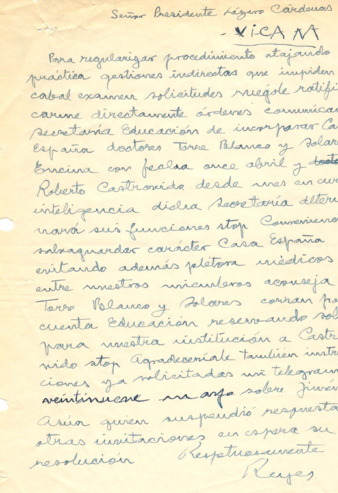 Señor Presidente Lázaro Cárdenas
- VICAM
Para regularizar procedimiento atajando
práctica gestiones indirectas que impiden
cabal examen solicitudes ruégole ratifi
carme directamente órdenes comunicar
secretaría Educación de incorporar Ca
España doctores Torre Blanco y Solar
Encina con fecha once abril y
Roberto Castrovido desde mes en cur
inteligencia dicha secretaría deter
nará sus funciones stop
salvaguardar carácter Casa España
evitando además plétora médicos
entre nuestros miembros aconseja
Torre Blanco y Solares corran po
cuenta Educación reservando sol
para nuestra institución a Castr
vido stop Agradeceríale también instru
ciones ya solicitadas mi telegram
veintinueve sobre Jimén
Asúa quien suspendió respuesta
otras invitaciones en espera su
resolución Respetuosamente
Reyes